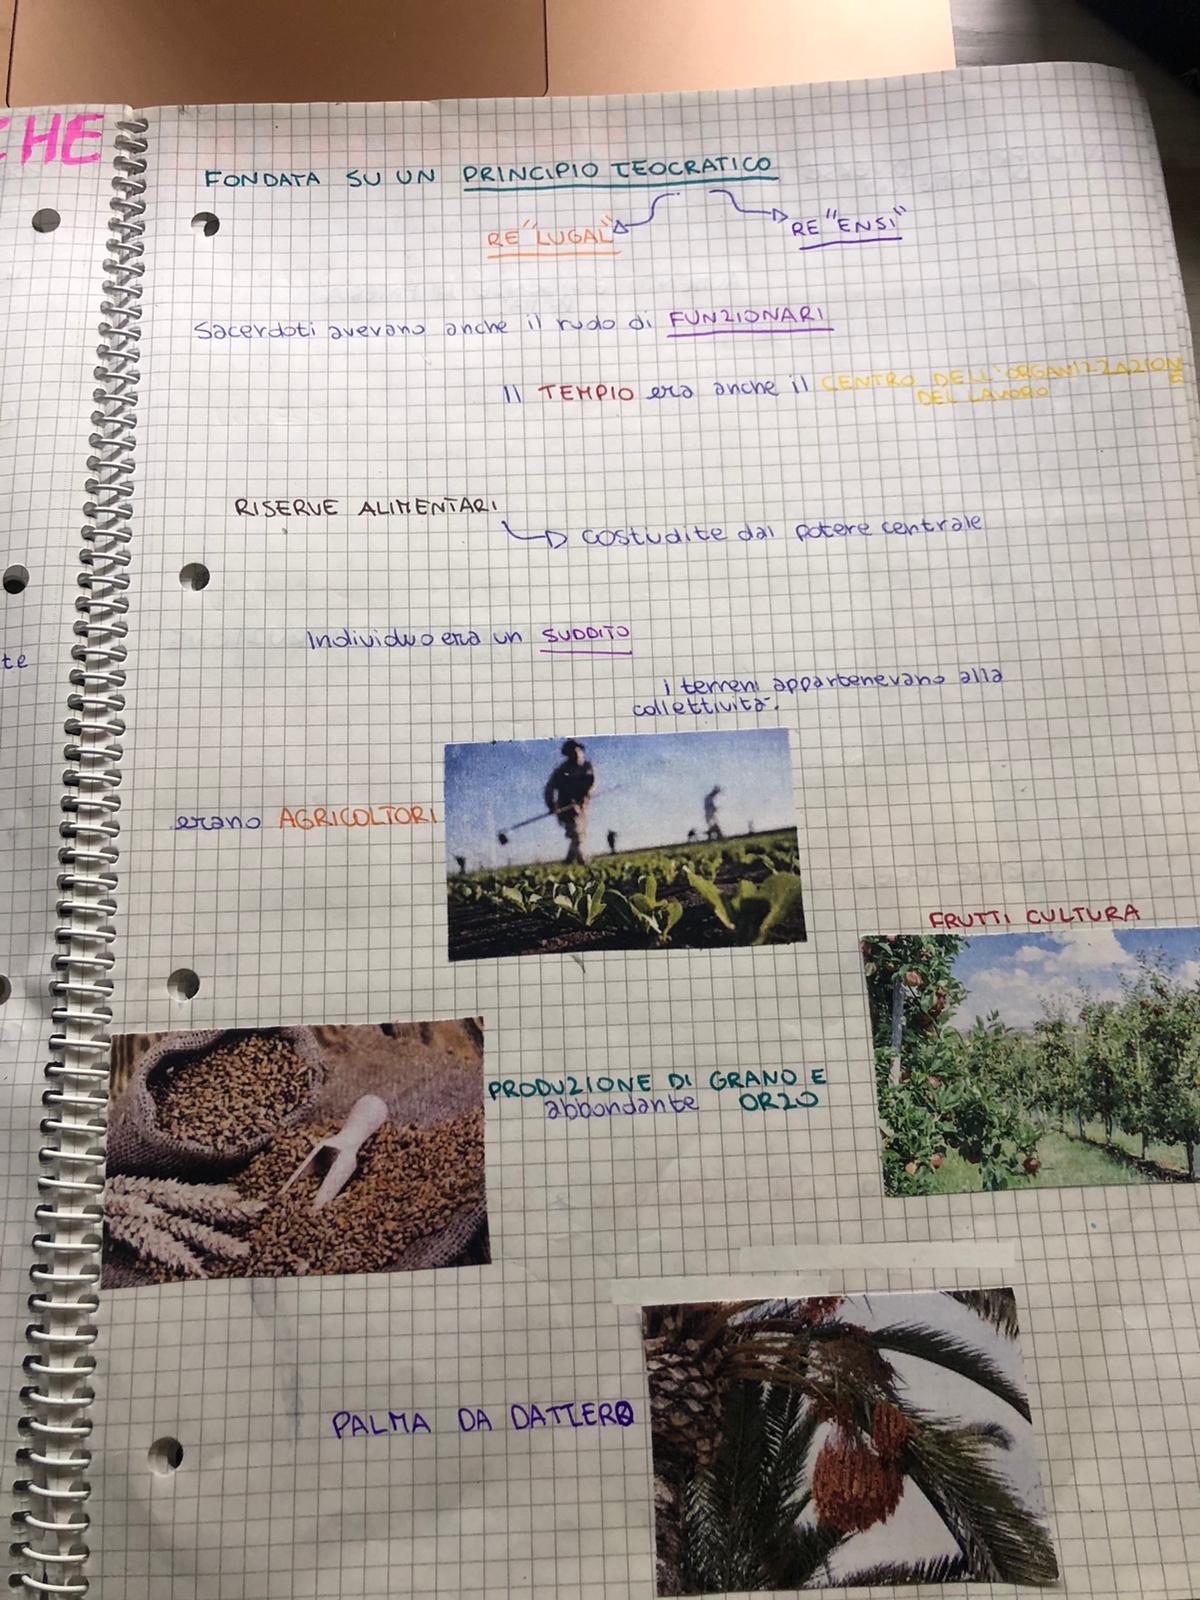 CHE
FONDATA SU UN PRINCIPIO TEOCRATICO
RE "LUGAL"
RE "ENSI"
Sacerdoti avevano anche il ruolo di FUNZIONARI
Il TEMPIO era anche il CENTRO DELL'ORGANIZZAZIONE
DEL LAVORO
RISERVE ALIMENTARI
costudite dal potere centrale
Individuo era un SUDDITO
te
i terreni appartenevano alla
collettività.
erano AGRICOLTORI
FRUTTI CULTURA
PRODUZIONE DI GRANO E
abbondante ORZO
PALMA DA DATTERO